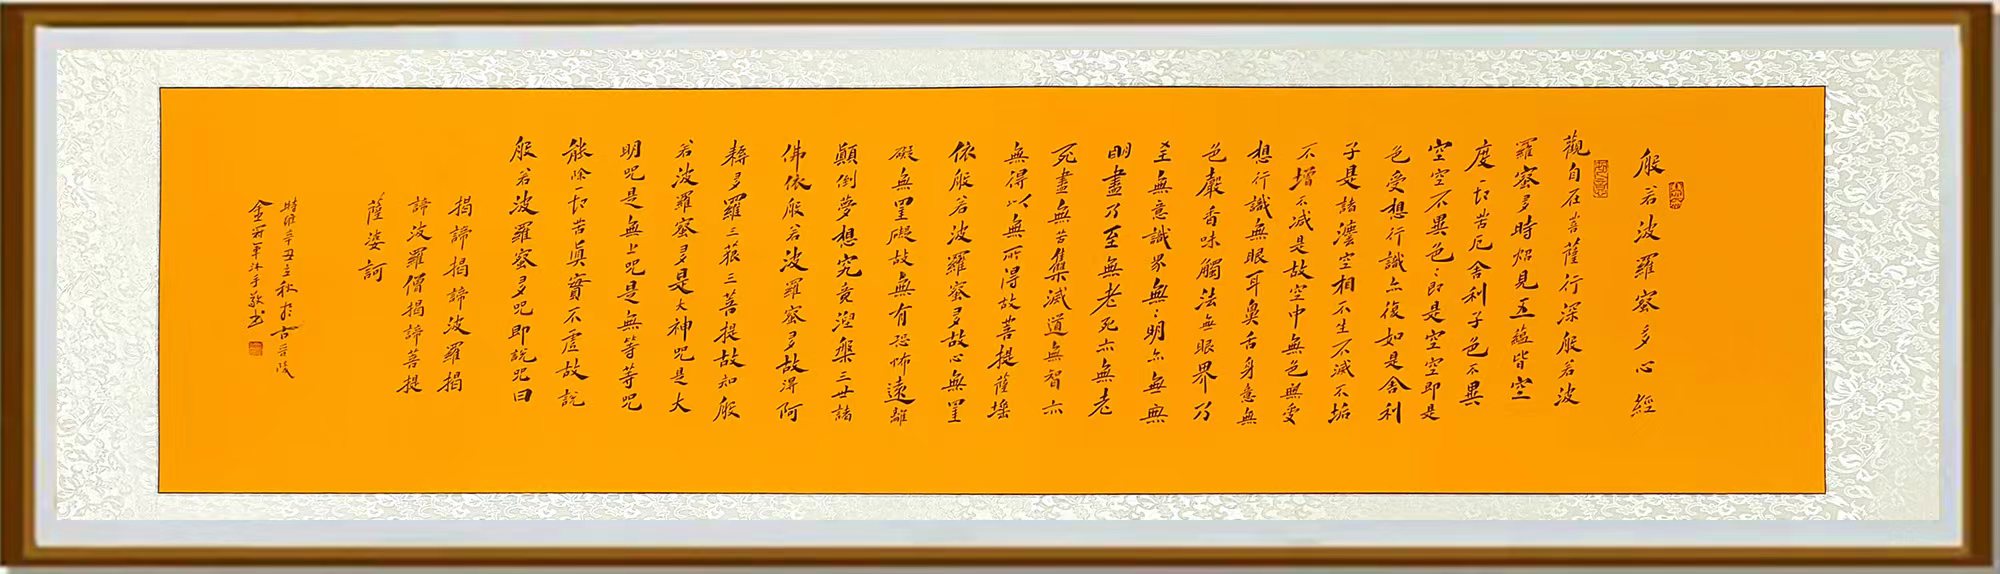 般若波羅蜜多心經
觀自在菩薩行深般若波
羅蜜多時炤見五蘊皆空
度一切苦厄舍利子色不異
空空不異色:即是空空即是
色受想行識亦復如是舍利
子是諸法空相不生不滅不垢
不增不減是故空中無色無受
想行識無眼耳鼻舌身意無
色聲香味觸法無眼界乃
至無意識界無:明亦無無
明盡乃至無老死亦無老
死盡無苦集滅道無智亦
無得以無所得故菩提薩埵
依般若波羅蜜多故心無罣
礙無罣礙故無有恐怖遠離
顛倒夢想究竟涅槃三世諸
佛依般若波羅蜜多故得阿
耨多羅三藐三菩提故知般
若波羅蜜多是大神呪是大
明呪是無上呪是無等等呪
能除一切苦真實不虛故說
般若波羅蜜多呪即說呪曰
揭諦揭諦波羅揭
諦波羅僧揭諦菩提
薩婆訶
時維辛丑立秋於古晉陵
敬書